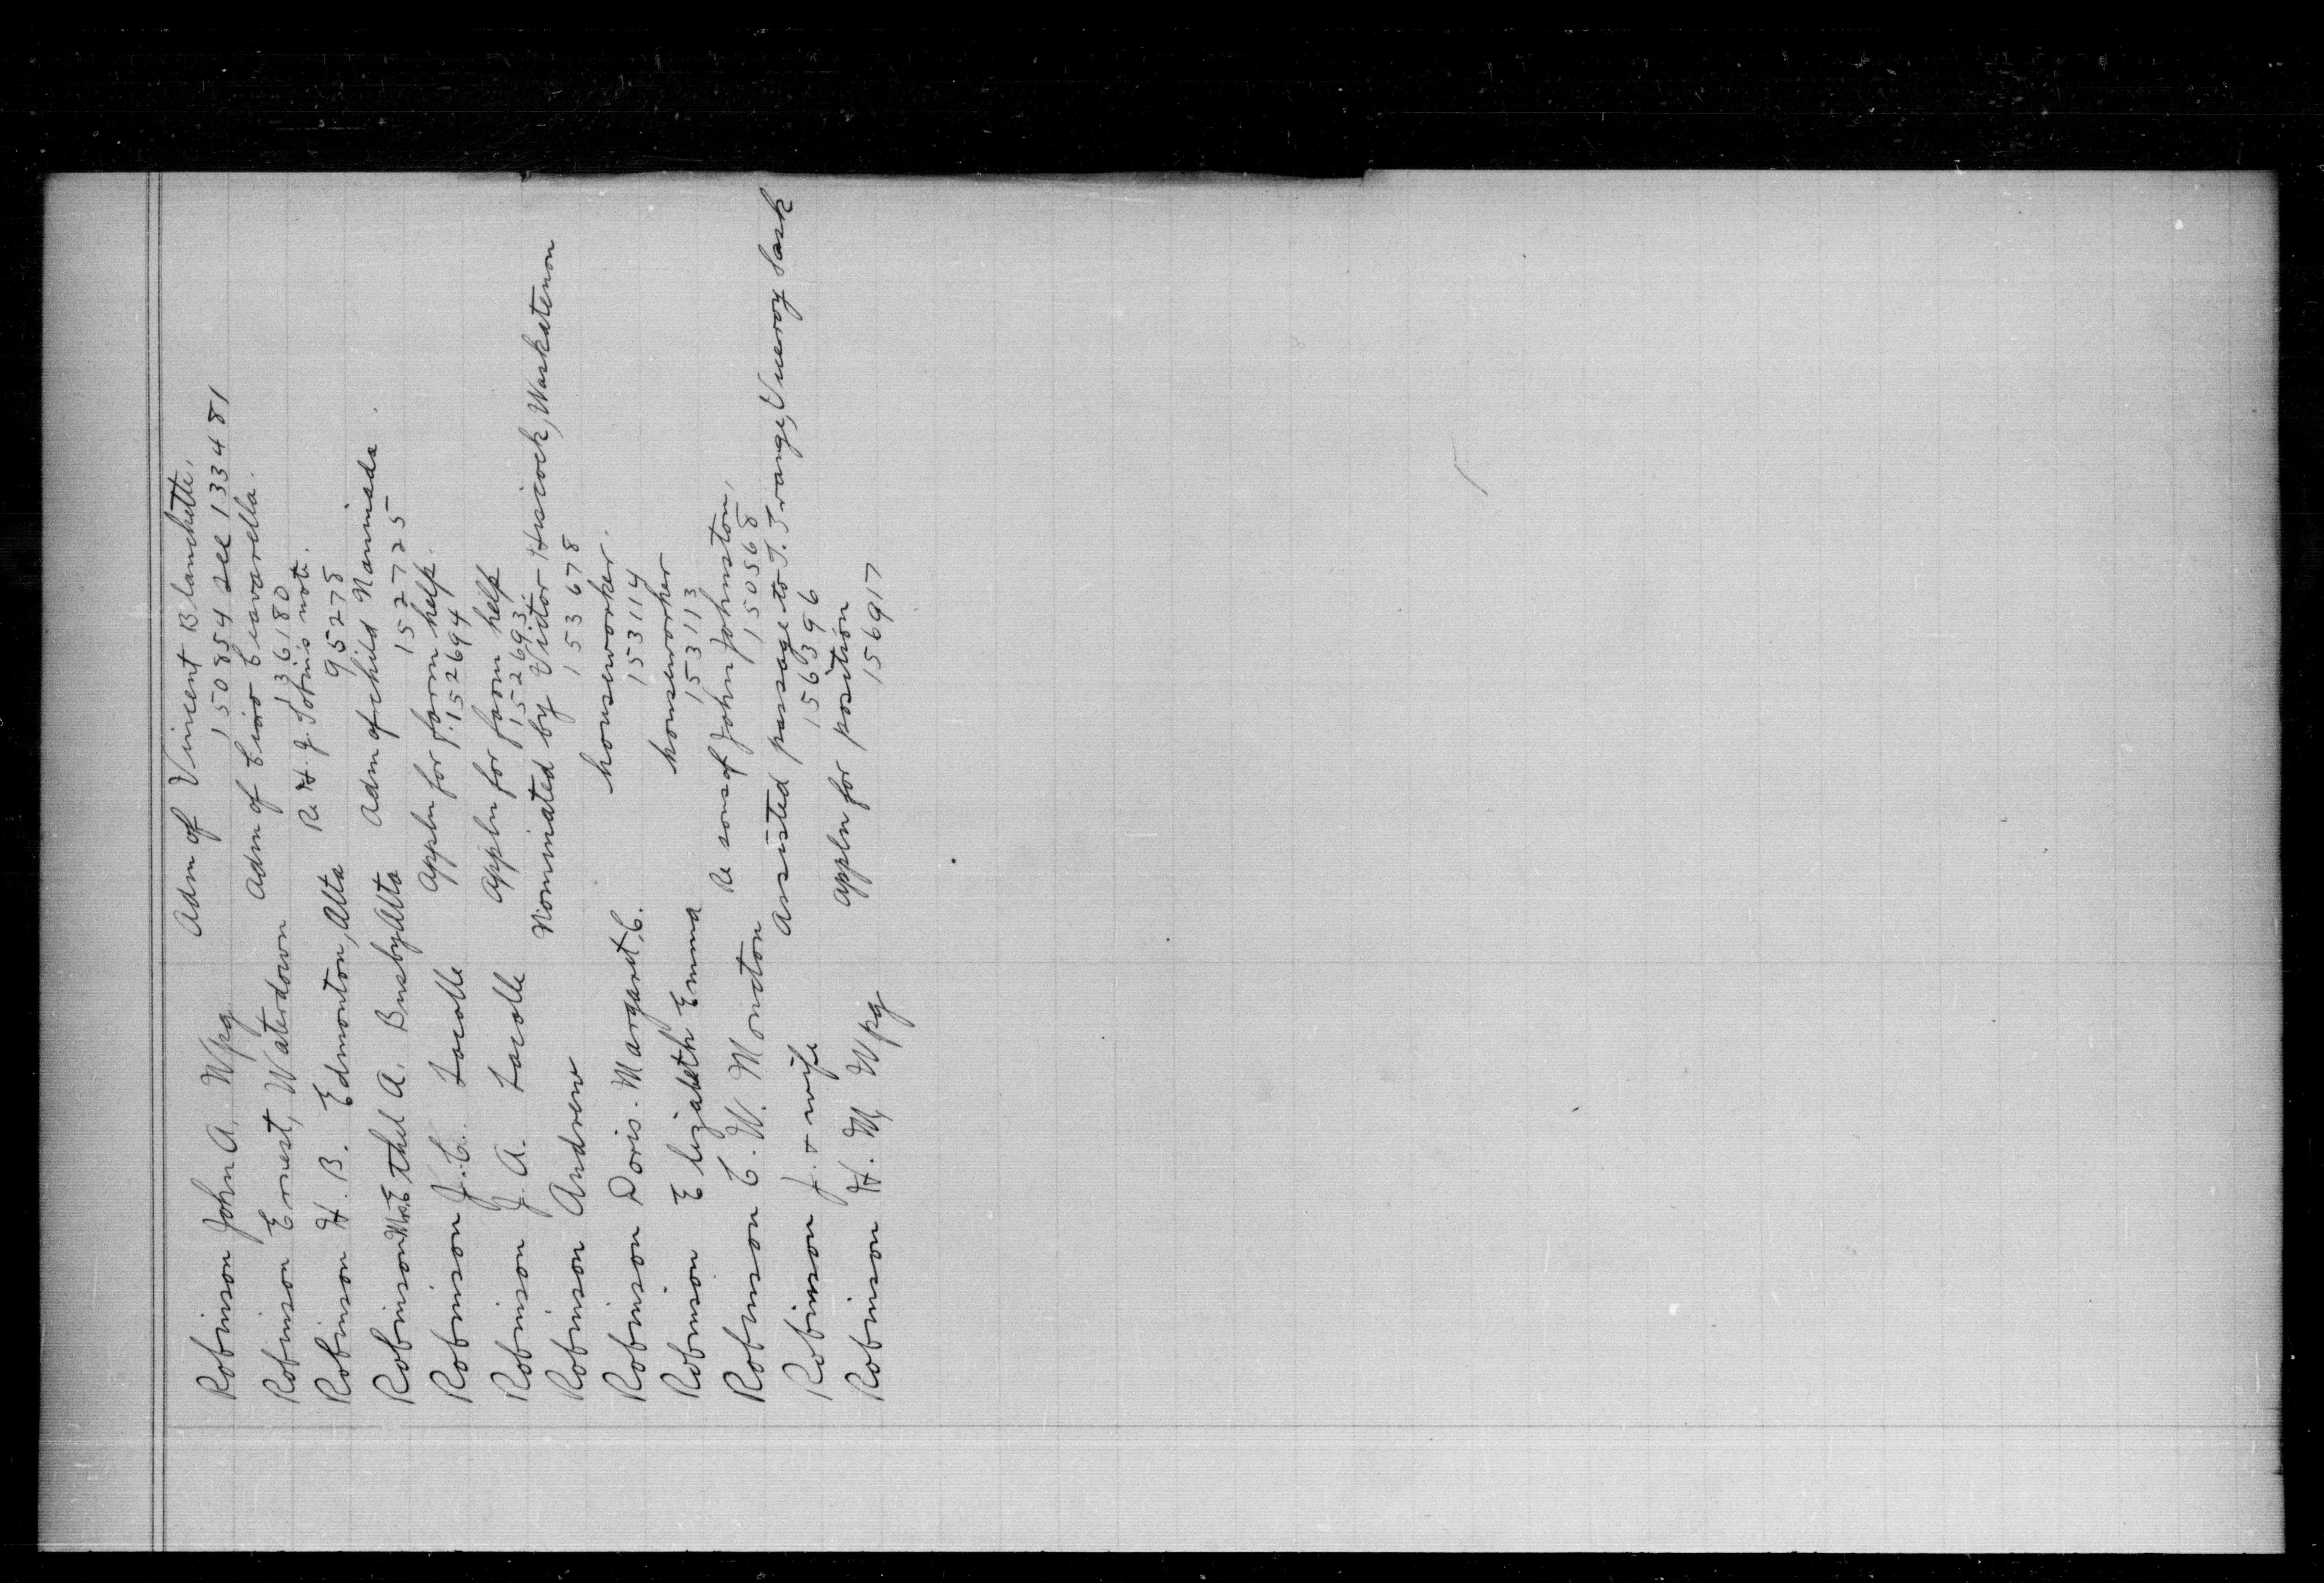 Robinson John A, Wpg. Adm of Vincent Blanchette,
150854 see 133481
Robinson Ernest, Waterdown Adm of Ciro Ciavarella.
136180
Robinson H. B. Edmonton, Alta Re H. J. Sotnis note.
95278
Robinson Mrs. Ethel A. Busby Alta Adm of child Nannieada.
152725
Robinson J. C. Lacolle Appln for farm help.
152694
Robinson J. A. Lacolle Appln for farm help
152693
Robinson Andrew Nominated by Victor Hiscock, Waskatenon
153678
Robinson Doris. Margaret, C. houseworker.
153114
Robinson Elizabeth Emma houseworker
153113
Robinson C. W. Moncton Re sons of John Johnston,
150568
Robinson J. & wife Assisted passage to T. Trange, Viceroy Sask
156396
Robinson H. M, Wpg Appln for position
156917